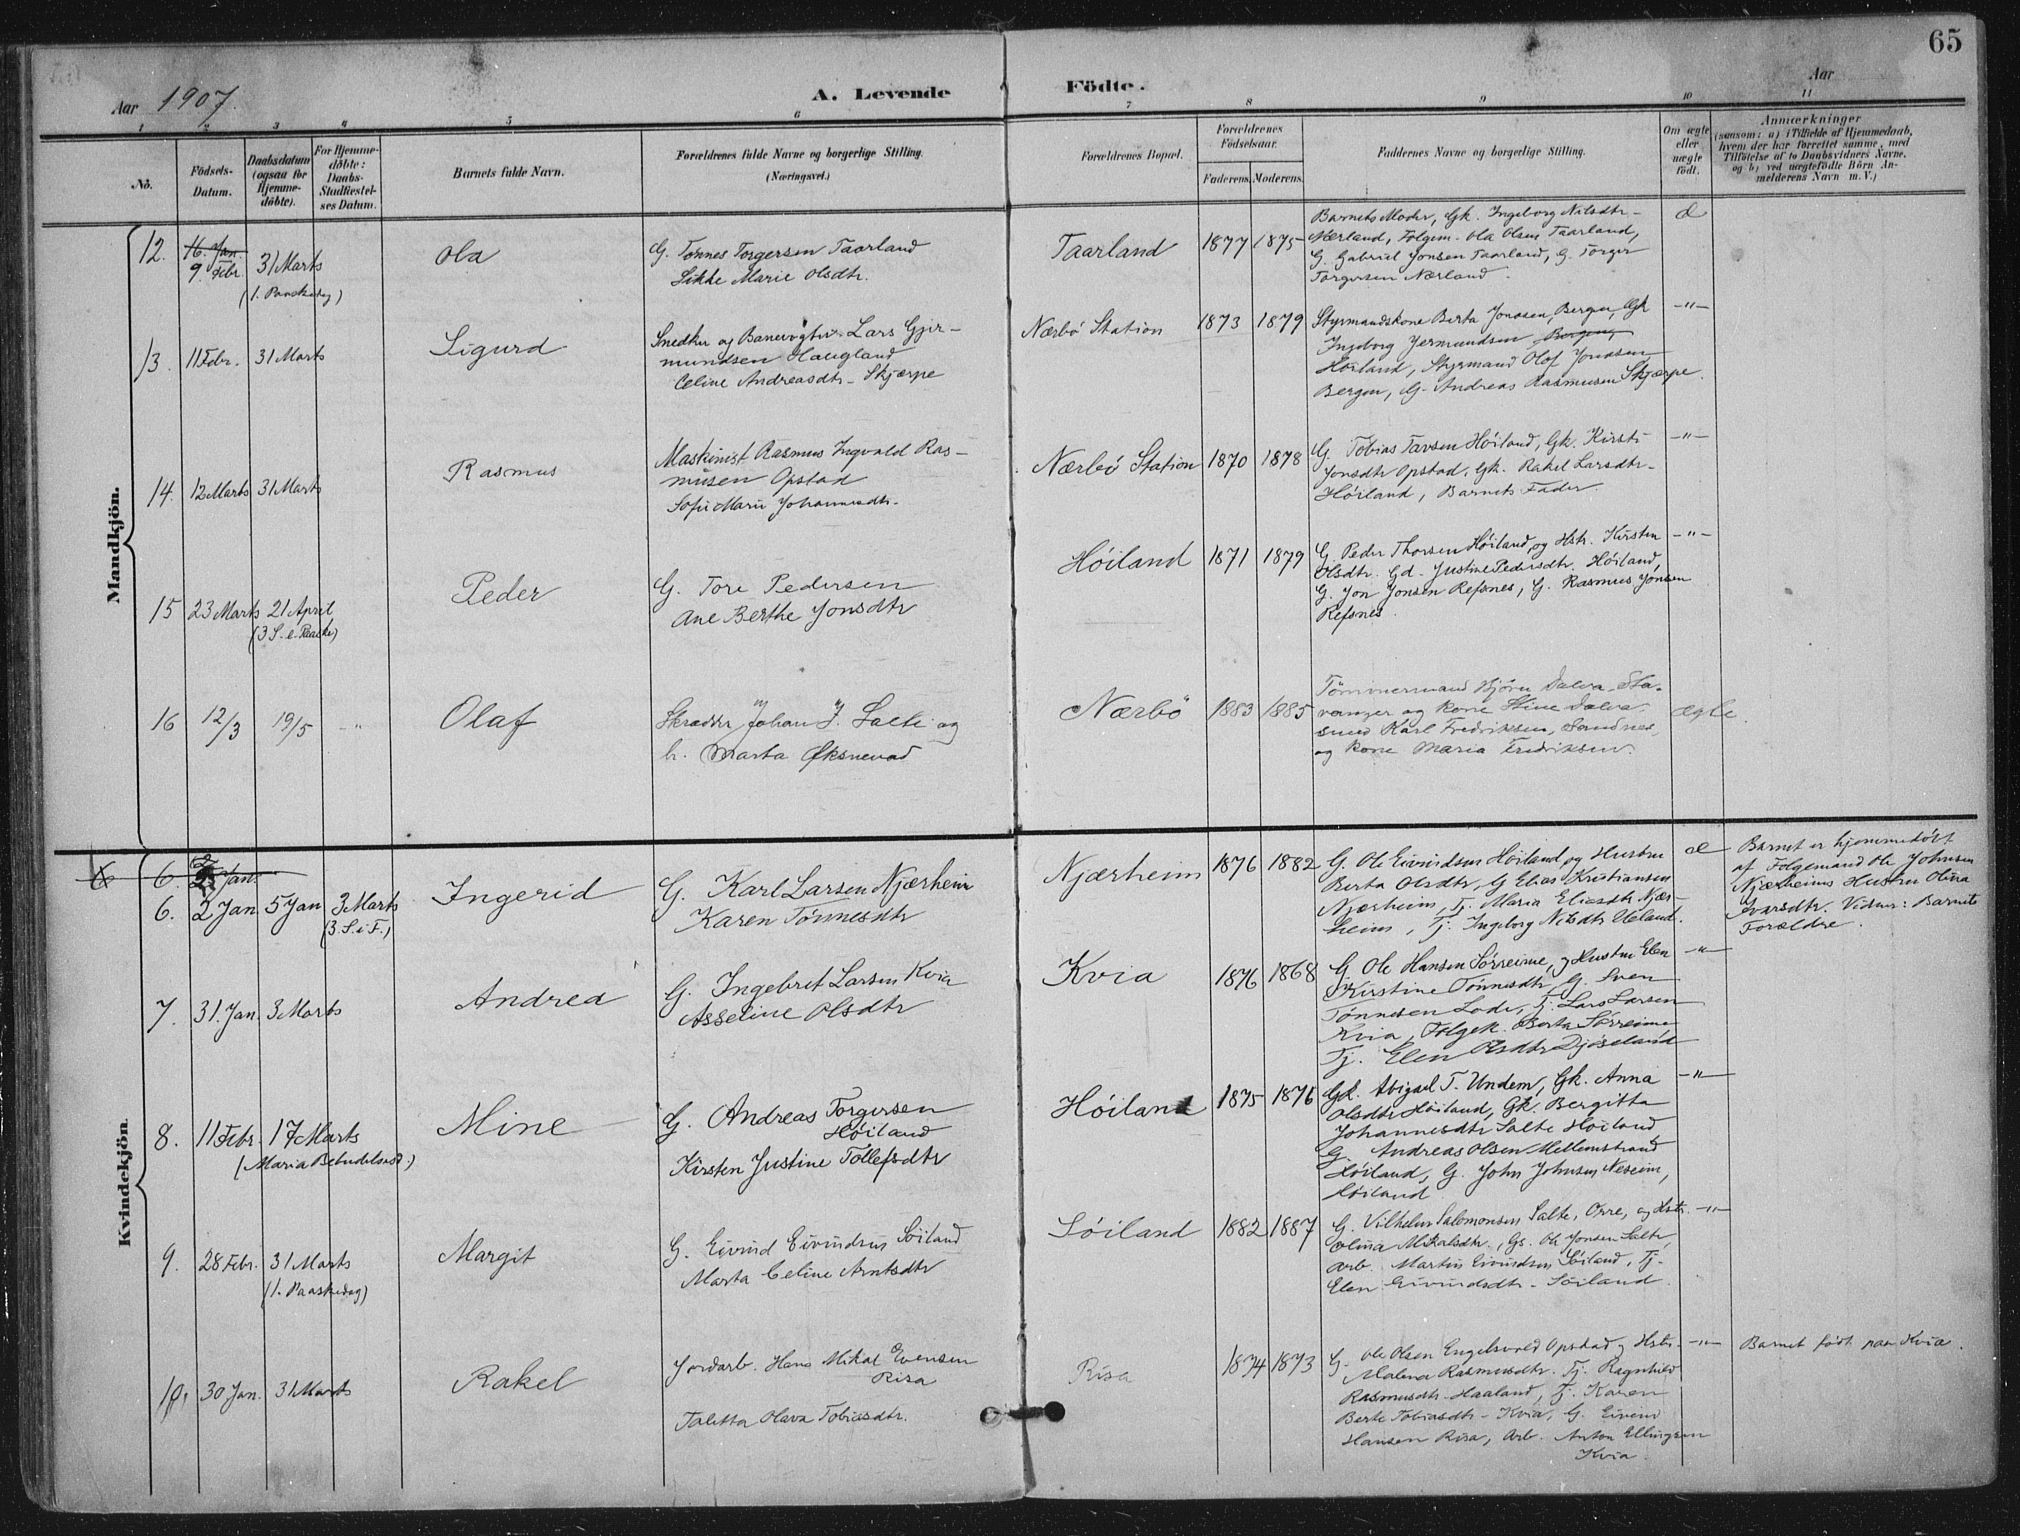 65
Aar 1907.
A. Levende Födte.
Aar
1 2 3 4 5 6 7 8 9 10 11
No.
Födsels-
Datum.
Daabsdatum
(ogsaa for
Hjemme-
döbte).
For Hjemme-
döbte:
Daabs-
Stadfæstel-
ses Datum.
Barnets fulde Navn.
Forældrenes fulde Navne og borgerlige Stilling.
(Næringsvei.)
Forældrenes Bopæl.
Forældrenes
Födselsaar.
Faderens. Moderens.
Faddernes Navne og borgerlige Stilling.
Om ægte
eller
uægte
födt.
Anmærkninger
(saasom: a) i Tilfælde af Hjemmedaab,
hvem der har forrettet samme, med
Tilföielse af to Daabsvidners Navne,
og b) ved uægtefödte Börn An-
melderens Navn m. V.)
Mandkjön.
12. 16. Jan.
9. Febr. 31 Marts
(1. Paaskedag)
Ola
G. Tönnes Torgersen Taarland
Sikke Marie Olsdtr.
Taarland
1877 1875
Barnets Moder, Gk. Ingeborg Nilsdtr-
Nærland, Følgem. Ola Olsen Taarland,
G. Gabriel Jonsen Taarland, G. Torger
Torgersen Nærland.
æ
13. 11 Febr. 31 Marts
Sigurd
Snedker og Banevogter Lars Gjer-
mundsen Haugland
Celine Andreasdtr. Skjærpe
Nærbö Station
1873 1879
Styrmandskone Berta Jonasen, Bergen, Gk
Ingeborg Jermundsen Bergen,
Höiland, Styrmand Olaf Jonasen
Bergen, G. Andreas Rasmusen Skjærpe.
-"-
14. 12 Marts 31 Marts
Rasmus
Maskinist Rasmus Ingvald Ras-
musen Opstad
Sofie Marie Johannesdtr.
Nærbö Station
1870 1878
G. Tobias Tavsen Höiland, Gk. Kirsti
Jonsdtr Opstad, Gk. Rakel Larsdtr-
Höiland, Barnets Fader.
-"-
15 23 Marts 21 April
(3 S. e. Paaske)
Peder
G. Tore Pedersen
Ane Berthe Jonsdtr
Höiland
1871 1879
G. Peder Thorsen Höiland og Hstr. Kirsten
Olsdtr. Gd. Justine Pedersdtr. Höiland,
G. Jon Jonsen Refsnes, G. Rasmus Jonsen
Refsnes.
-"-
16 12/3 19/5 -"-
Olaf
Skrædder Johan J. Salte og
h. Marta Øksnevad
Nærbö
1883 1885
Tömmermand Björn Dalva Sta-
vanger og kone Stine Dalva.
smed Karl Fredriksen, Sandnes,
og kone Maria Fredriksen.
ægte.
Kvindekjön.
6. 2 Jan.
6. 2 Jan 5 Jan 3 Marts
(3. S. i F.)
Ingerid
G. Karl Larsen Njærheim
Karen Tönnesdtr
Njærheim
1876 1882
G. Ole Eivindsen Höiland og Hustru
Berta Olsdtr, G. Elias Kristiansen
Njærheim, Tj. Maria Eliasdtr Njær-
heim, Tj. Ingeborg Nilsdtr Ueland.
æ
Barnet er hjemmedöbt
af Følgemand Ole Johnsen
Njærheims Hustru Olina
Ivarsdtr. Vidner: Barnets
Forældre.
7. 31. Jan. 3 Marts
Andrea
G. Ingebret Larsen Kvia
Asseline Olsdtr
Kvia
1876 1868
G. Ole Hansen Sörreime, og Hustru Elen
Kirstine Tönnesdtr, G. Sven
Tönnesen Lode, Tj. Lars Larsen
Kvia, Følgek. Berta Sörreime
Tj. Elen Olsdtr Djöseland
-"-
8. 11 Febr. 17 Marts
(Maria Bebudelsesd.)
Mine
G. Andreas Torgersen
Höiland
Kirsten Justine Tollefsdtr
Höiland
1875 1876
Gk. Abigael T. Undem, Gk. Anna
Olsdtr Höiland, Gk. Bergitta
Johannesdtr Salte Höiland
G. Andreas Olsen Mellemstrand
Höiland, G. John Johnsen Neseim,
Höiland
-"-
9. 28 Febr. 31 Marts
(1. Paaskedag)
Margit
G. Eivind Eivindsen Söiland
Marta Celine Arntsdtr
Söiland
1882 1887
G. Vilhelm Salomonsen Salte, Orre, og Hstr.
Olina Mikalsdtr., Gs. Ole Jonsen Salte,
Arb. Martin Eivindsen Söiland, Tj.
Elen Eivindsdtr - Söiland.
-"-
10. 30 Jan. 31 Marts
Rakel
Jordarb. Hans Mikal Evensen
Risa
Taletta Olava Tobiasdtr.
Risa
1874 1873
G. Ole Olsen Engelsvold Opstad og Hstr.
Malena Rasmusdtr. Tj. Ragnhild
Rasmusdtr Haaland, Tj. Karen
Berte Tobiasdtr - Kvia, G. Eivind
Hansen Risa, Arb. Anton Ellingsen
Kvia.
-"-
Barnet født paa Kvia.